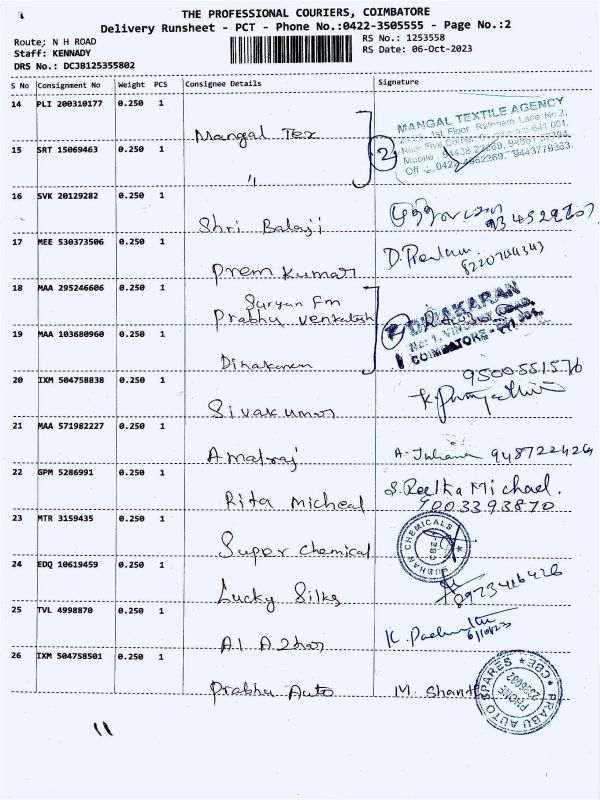 THE PROFESSIONAL COURIERS, COIMBATORE
Delivery Runsheet - PCT - Phone No.:0422-3505555 - Page No.:2
Route; N H ROAD
Staff: KENNADY
DRS No.: DCJB125355802
RS No.: 1253558
RS Date: 06-Oct-2023
S No Consignment No Weight PCS Consignee Details Signature
14 PLI 200310177 0.250 1
Mangal Tex
2
MANGAL TEXTILE AGENCY
1st Floor,
15 SRT 15069463 0.250 1
"
16 SVK 20129282 0.250 1
Shri Balaji
17 MEE 530373506 0.250 1
Prem Kumar
18 MAA 295246606 0.250 1
Suryan Fm
Prabhu Venkatesh
DINAKARAN
COIMBATORE
19 MAA 103680960 0.250 1
Dinakaran
20 IXM 504758838 0.250 1
Sivakumar
9500551576
21 MAA 571982227 0.250 1
Amalraj
A. Juliana
22 GPM 5286991 0.250 1
Rita Micheal
Michael.
9003393870
23 MTR 3159435 0.250 1
Super Chemical
CHEMICALS
24 EDQ 10619459 0.250 1
Lucky Silks
25 TVL 4998870 0.250 1
Al Azhar
6/10/23
26 IXM 504758501 0.250 1
Prabhu Auto
M. Shanthi
PRABU AUTO SPARES CBE
PHONE